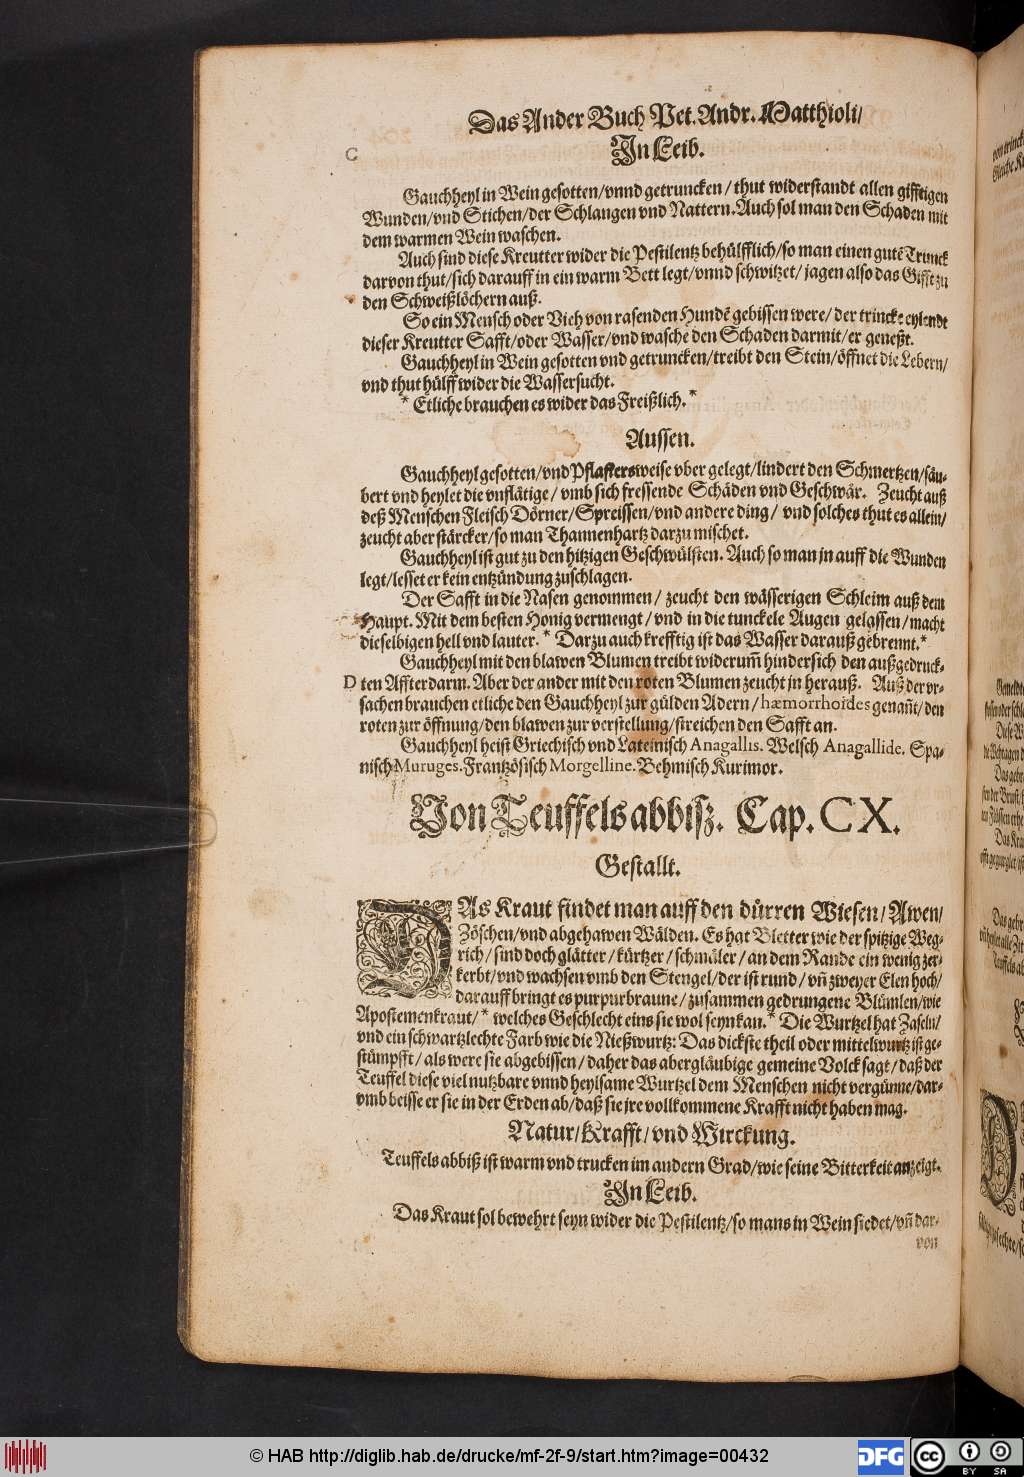 Das Ander Buch Pet. Andr. Matthioli/
C
In Leib.
Gauchheyl in Wein gesotten/vnnd getruncken / thut widerstandt allen gifftigen
Wunden/vnd Stichen/der Schlangen vnd Nattern. Auch sol man den Schaden mit
dem warmen Wein waschen.
Auch sind diese Kreutter wider die Pestilentz behülfflich/so man einen gutẽ Trunck
darvon thut/sich darauff in ein warm Bett legt/vnnd schwitzet / jagen also das Gifft zu
den Schweißlöchern auß.
So ein Mensch oder Vieh von rasenden Hundẽ gebissen were/ der trincke eylendt
dieser Kreutter Safft/oder Wasser/vnd wasche den Schaden darmit/er geneßt.
Gauchheyl in Wein gesotten vnd getruncken/treibt den Stein/öffnet die Lebern/
vnd thut hülff wider die Wassersucht.
* Etliche brauchen es wider das Freißlich.*
Aussen.
Gauchheyl gesotten/vnd Pflastersweise vber gelegt/lindert den Schmertzen/säu-
bert vnd heylet die vnflätige / vmb sich fressende Schäden vnd Geschwär. Zeucht auß
deß Menschen Fleisch Dörner/Spreissen/vnd andere ding/ vnd solches thut es allein/
zeucht aber stärcker/so man Thannenhartz darzu mischet.
Gauchheyl ist gut zu den hitzigen Geschwülsten. Auch so man jn auff die Wunden
legt/lesset er kein entzündung zuschlagen.
Der Safft in die Nasen genommen/ zeucht den wässerigen Schleim auß dem
Haupt. Mit dem besten Honig vermengt/ vnd in die tunckele Augen gelassen/macht
dieselbigen hell vnd lauter. * Darzu auch krefftig ist das Wasser darauß gebrennt.*
Gauchheyl mit den blawen Blumen treibt widerum̃ hindersich den außgedruck-
D
ten Affterdarm. Aber der ander mit den roten Blumen zeucht jn herauß. Auß der vr-
sachen brauchen etliche den Gauchheyl zur gülden Adern/ hæmorrhoides genañt/ den
roten zur öffnung/den blawen zur verstellung/streichen den Safft an.
Gauchheyl heist Griechisch vnd Lateinisch Anagallis. Welsch Anagallide. Spa-
nisch Muruges. Frantzösisch Morgelline. Behmisch Kurimor.
Von Teuffelsabbisz. Cap. CX.
Gestallt.
DAs Kraut findet man auff den dürren Wiesen/ Awen/
Zöschen/vnd abgehawen Wälden. Es hat Bletter wie der spitzige Weg-
rich/ sind doch glätter/ kürtzer/ schmäler/ an dem Rande ein wenig zer-
kerbt/vnd wachsen vmb den Stengel/der ist rund/ vñ zweyer Elen hoch/
darauff bringt es purpurbraune/ zusammen gedrungene Blümlen/wie
Apostemenkraut/ * welches Geschlecht eins sie wol seyn kan.* Die Wurtzel hat Zaseln/
vnd ein schwartzlechte Farb wie die Nießwurtz: Das dickste theil oder mittelwurtz ist ge-
stümpfft/ als were sie abgebissen/ daher das abergläubige gemeine Volck sagt/ daß der
Teuffel diese viel nutzbare vnnd heylsame Wurtzel dem Menschen nicht vergünne/dar-
vmb beisse er sie in der Erden ab/daß sie jre vollkommene Krafft nicht haben mag.
Natur/Krafft/vnd Wirckung.
Teuffelsabbiß ist warm vnd trucken im andern Grad/wie seine Bitterkeit anzeigt.
In Leib.
Das Kraut sol bewehrt seyn wider die Pestilentz/so mans in Wein siedet/vñ dar-
von
© HAB http://diglib.hab.de/drucke/mf-2f-9/start.htm?image=00432
DFG
cc
BY SA